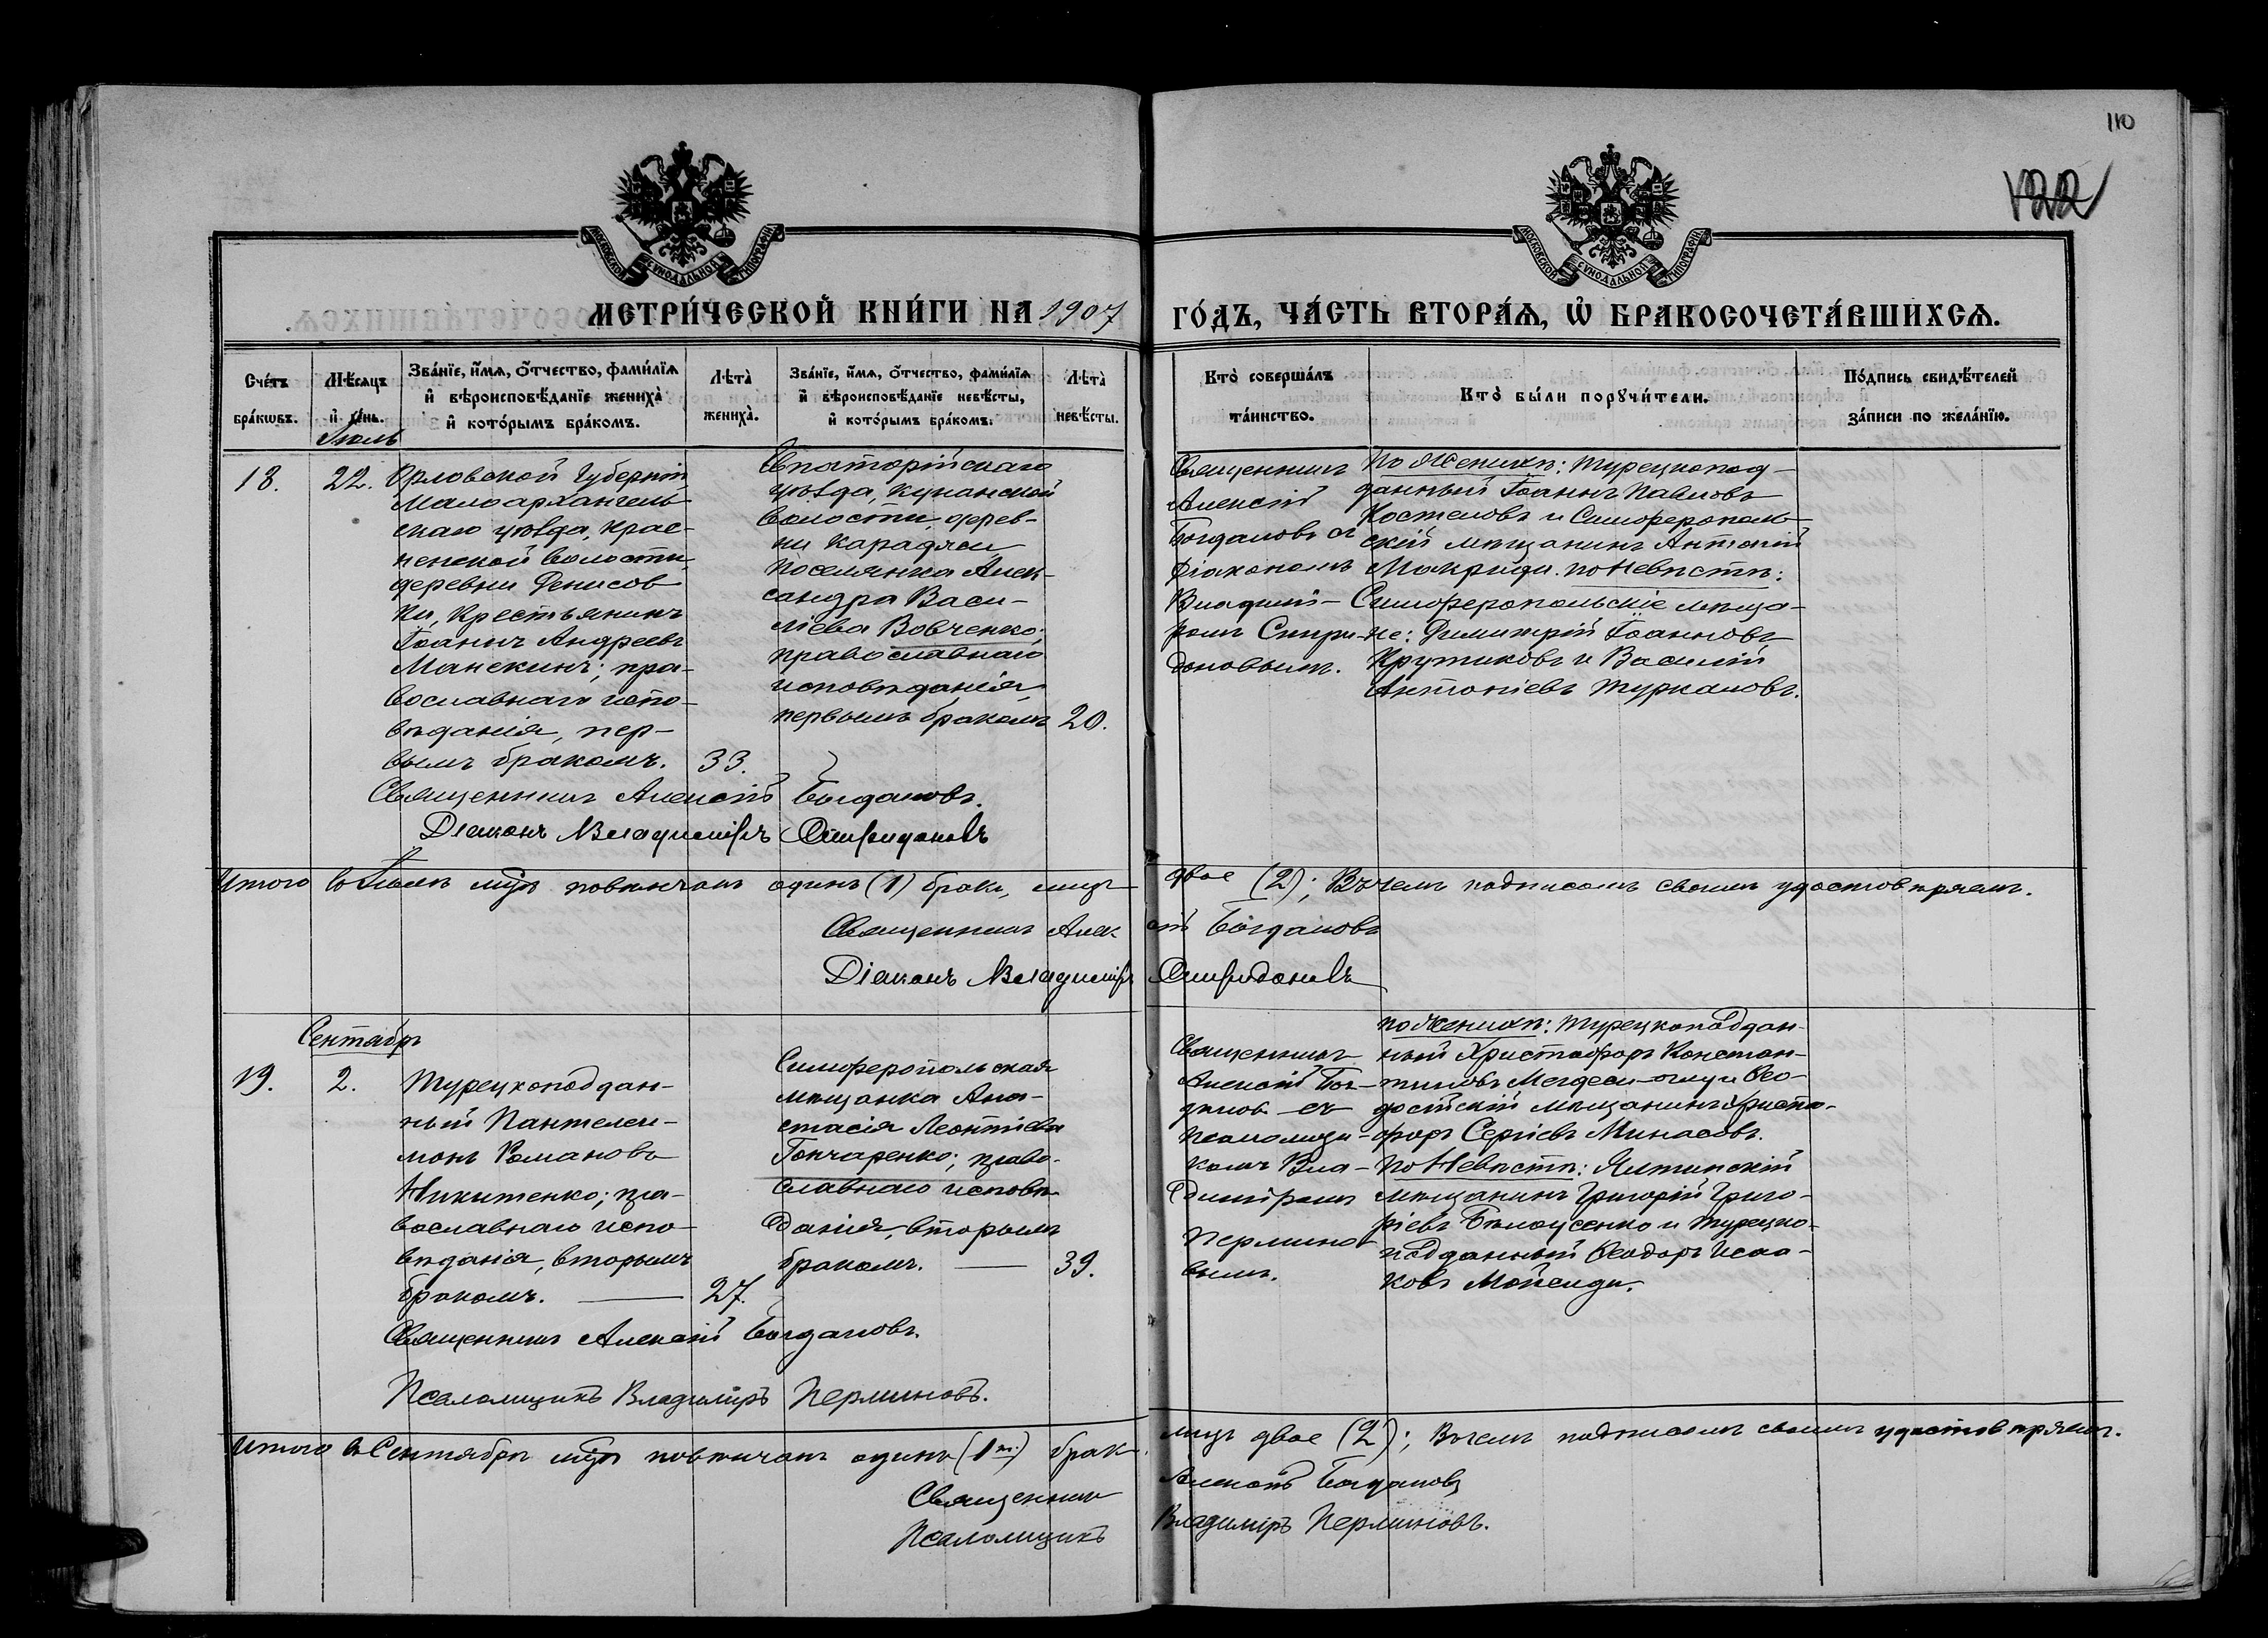 110
122
МОСКОВСКОЙ СѴНОДАЛЬНОЙ ТИПОГРАФІИ
МОСКОВСКОЙ СѴНОДАЛЬНОЙ ТИПОГРАФІИ
МЕТРИ́ЧЕСКОЙ КНИ́ГИ НА 1907
ГО́ДЪ, ЧА́СТЬ ВТОРА́Ѧ, Ѽ БРАКОСОЧЕТА́ВШИХСѦ.
Сче́тъ
бра́кѡвъ.
Мѣ́сѧцъ
и҆ де́нь.
Зва́нїе, и҆́мѧ, ѻ҆́тчество, фами́лїѧ
и҆ вѣроисповѣ́данїе жениха̀
и҆ кото́рымъ бра́комъ.
Лѣ́та̀
жениха̀.
Зва́нїе, и҆́мѧ, ѻ҆́тчество, фами́лїѧ
и҆ вѣроисповѣ́данїе невѣ́сты,
и҆ кото́рымъ бра́комъ.
Лѣ́та̀
невѣ́сты.
Кто̀ соверша́лъ
та́инство.
Кто̀ бы́ли порꙋчи́тели.
По́дпись свидѣ́телей
за́писи по жела́нїю.
Іюль
18.
22.
Орловской Губерніи
Малоархангель-
скаго уѣзда, Крас-
ненской волости,
деревни Денисов
ки, Крестьянинъ
Іоаннъ Андреевъ
Манекинъ; пра-
вославнаго испо-
вѣданія, пер-
вымъ бракомъ.
33.
Евпаторійскаго
уѣзда, Кунанской
волости, дерев-
ни Караджи
поселянка Алек-
сандра Васи-
ліева Вовченко;
православнаго
исповѣданія,
первымъ бракомъ
20.
Священникъ
Алексій
Богдановъ съ
Діакономъ
Владимі-
ромъ Спири-
доновымъ.
По Женихѣ: турецкопод-
данный Іоаннъ Павловъ
Костеловъ и Симферополь-
скій мѣщанинъ Антоній
Макриди. По Невѣстѣ:
Симферопольскіе мѣща-
не: Димитрій Іоанновъ
Крутиковъ и Василій
Антоніевъ Туркаловъ.
Священникъ Алексій Богдановъ.
Діаконъ Владиміръ Спиридоновъ
Итого въ Іюлѣ мцѣ повѣнчанъ одинъ (1) бракъ, лицъ
двое (2); Въ чемъ подписомъ своимъ удостовѣряемъ.
Священникъ Алек
сій Богдановъ
Діаконъ Владиміръ
Спиридоновъ
Сентябрь
19.
2.
Турецкоподдан-
ный Пантелей-
монъ Романовъ
Никитенко; пра-
вославнаго испо-
вѣданія, вторымъ
бракомъ.
27.
Симферопольская
мѣщанка Ана-
стасія Леонтіева
Гончаренко; право-
славнаго исповѣ-
данія, вторымъ
бракомъ.
39.
Священникъ
Алексій Бог-
дановъ съ
псаломщи-
комъ Вла-
диміромъ
Пермино
вымъ.
по Женихѣ: турецкоподдан-
ный Христофоръ Констан-
тиновъ Мегдеси-оглу и Ѳео-
досійскій мѣщанинъ Христо-
форъ Сергіевъ Минасовъ.
По Невѣстѣ: Ялтинскій
мѣщанинъ Григорій Григо-
ріевъ Бѣлоусенко и турецко-
подданный Ѳеодоръ Исаа-
ковъ Мойсиди.
Священникъ Алексій Богдановъ.
Псаломщикъ Владиміръ Перминовъ.
Итого въ Сентябрѣ мцѣ повѣнчанъ одинъ (1нъ) бракъ
лицъ двое (2); Въ чемъ подписомъ своимъ удостовѣряемъ.
Священникъ
Алексій Богдановъ
Псаломщикъ
Владиміръ Перминовъ.